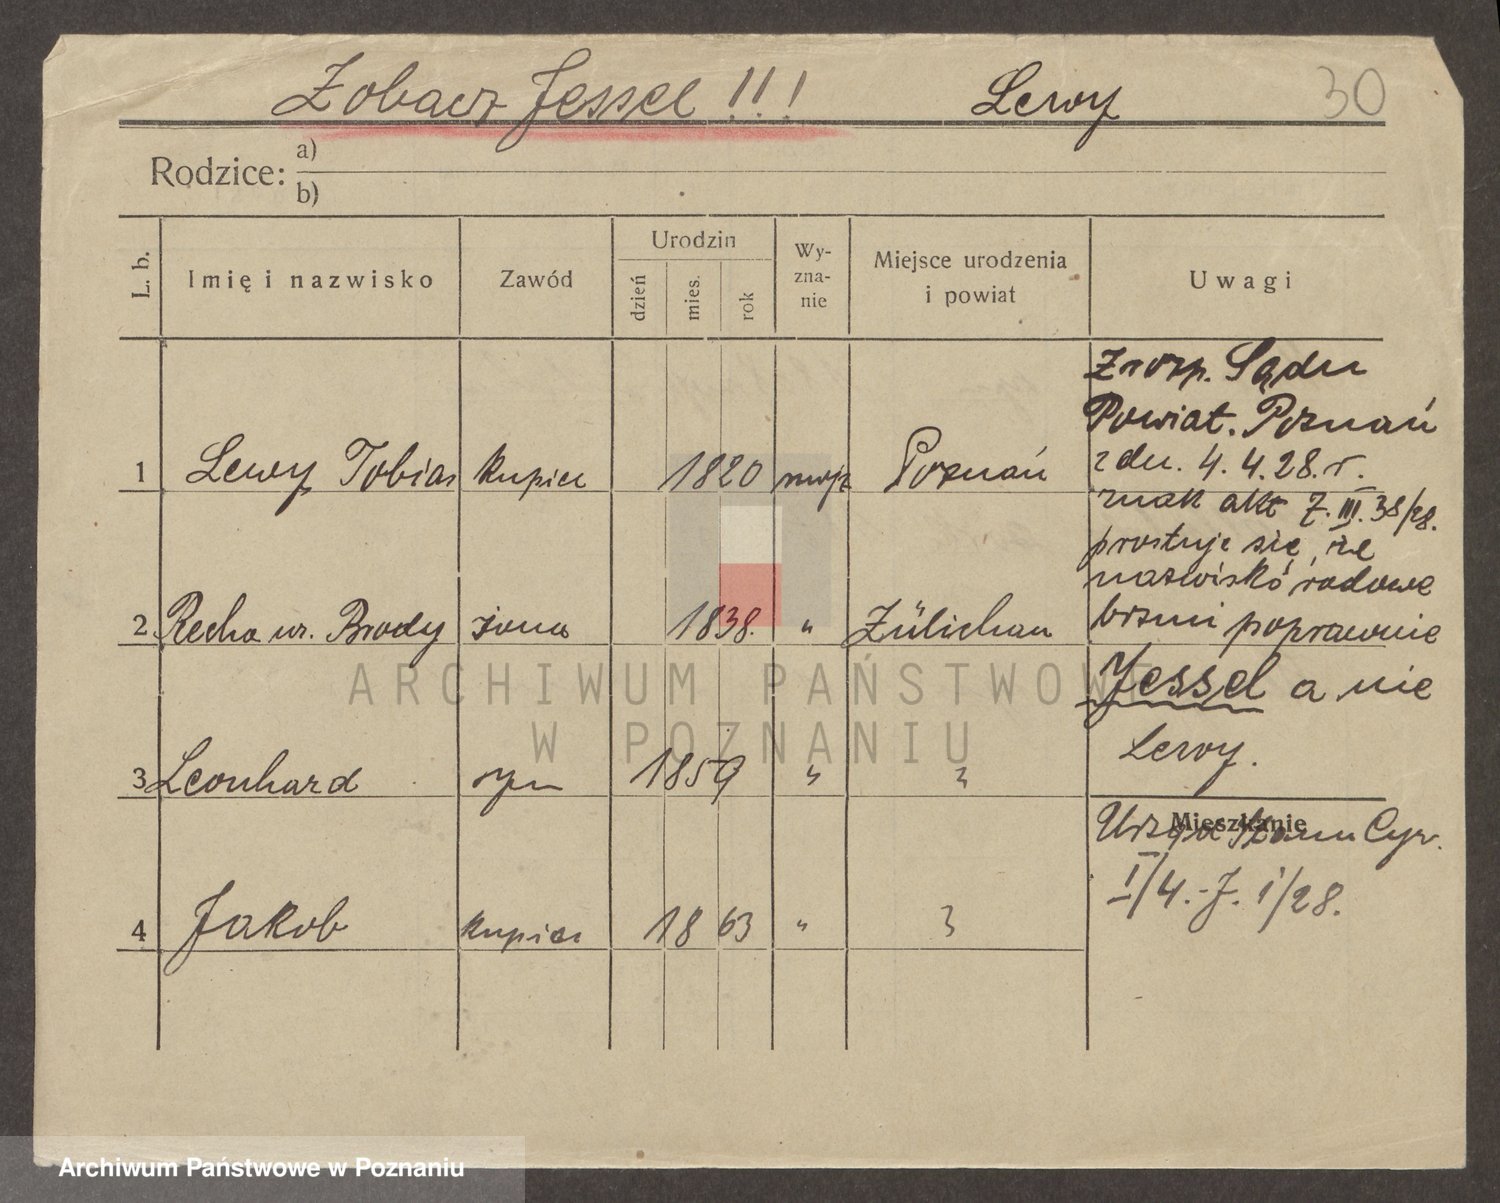 Zobacz Jessel !!! Lewy 30
Rodzice: a)
b)
L. b. Imię i nazwisko Zawód Urodzin dzień mies. rok Wy-zna-nie Miejsce urodzenia i powiat Uwagi
1 Lewy Tobias kupiec 1820 mojż Poznań
2 Recha ur. Brody żona 1838. " Zülichau
3 Leonhard syn 1859 " "
4 Jakob kupiec 1863 " "
Z rozp. Sądu
Powiat. Poznań
z dn. 4.4.28.r.
znak akt 7.III.38/28.
prostuje się, że
nazwisko rodowe
brzmi poprawnie
Jessel a nie
Lewy.
Mieszkanie
Urząd Stanu Cyw.
I/4.-J. 1/28.
ARCHIWUM PAŃSTWOWE
W POZNANIU
Archiwum Państwowe w Poznaniu